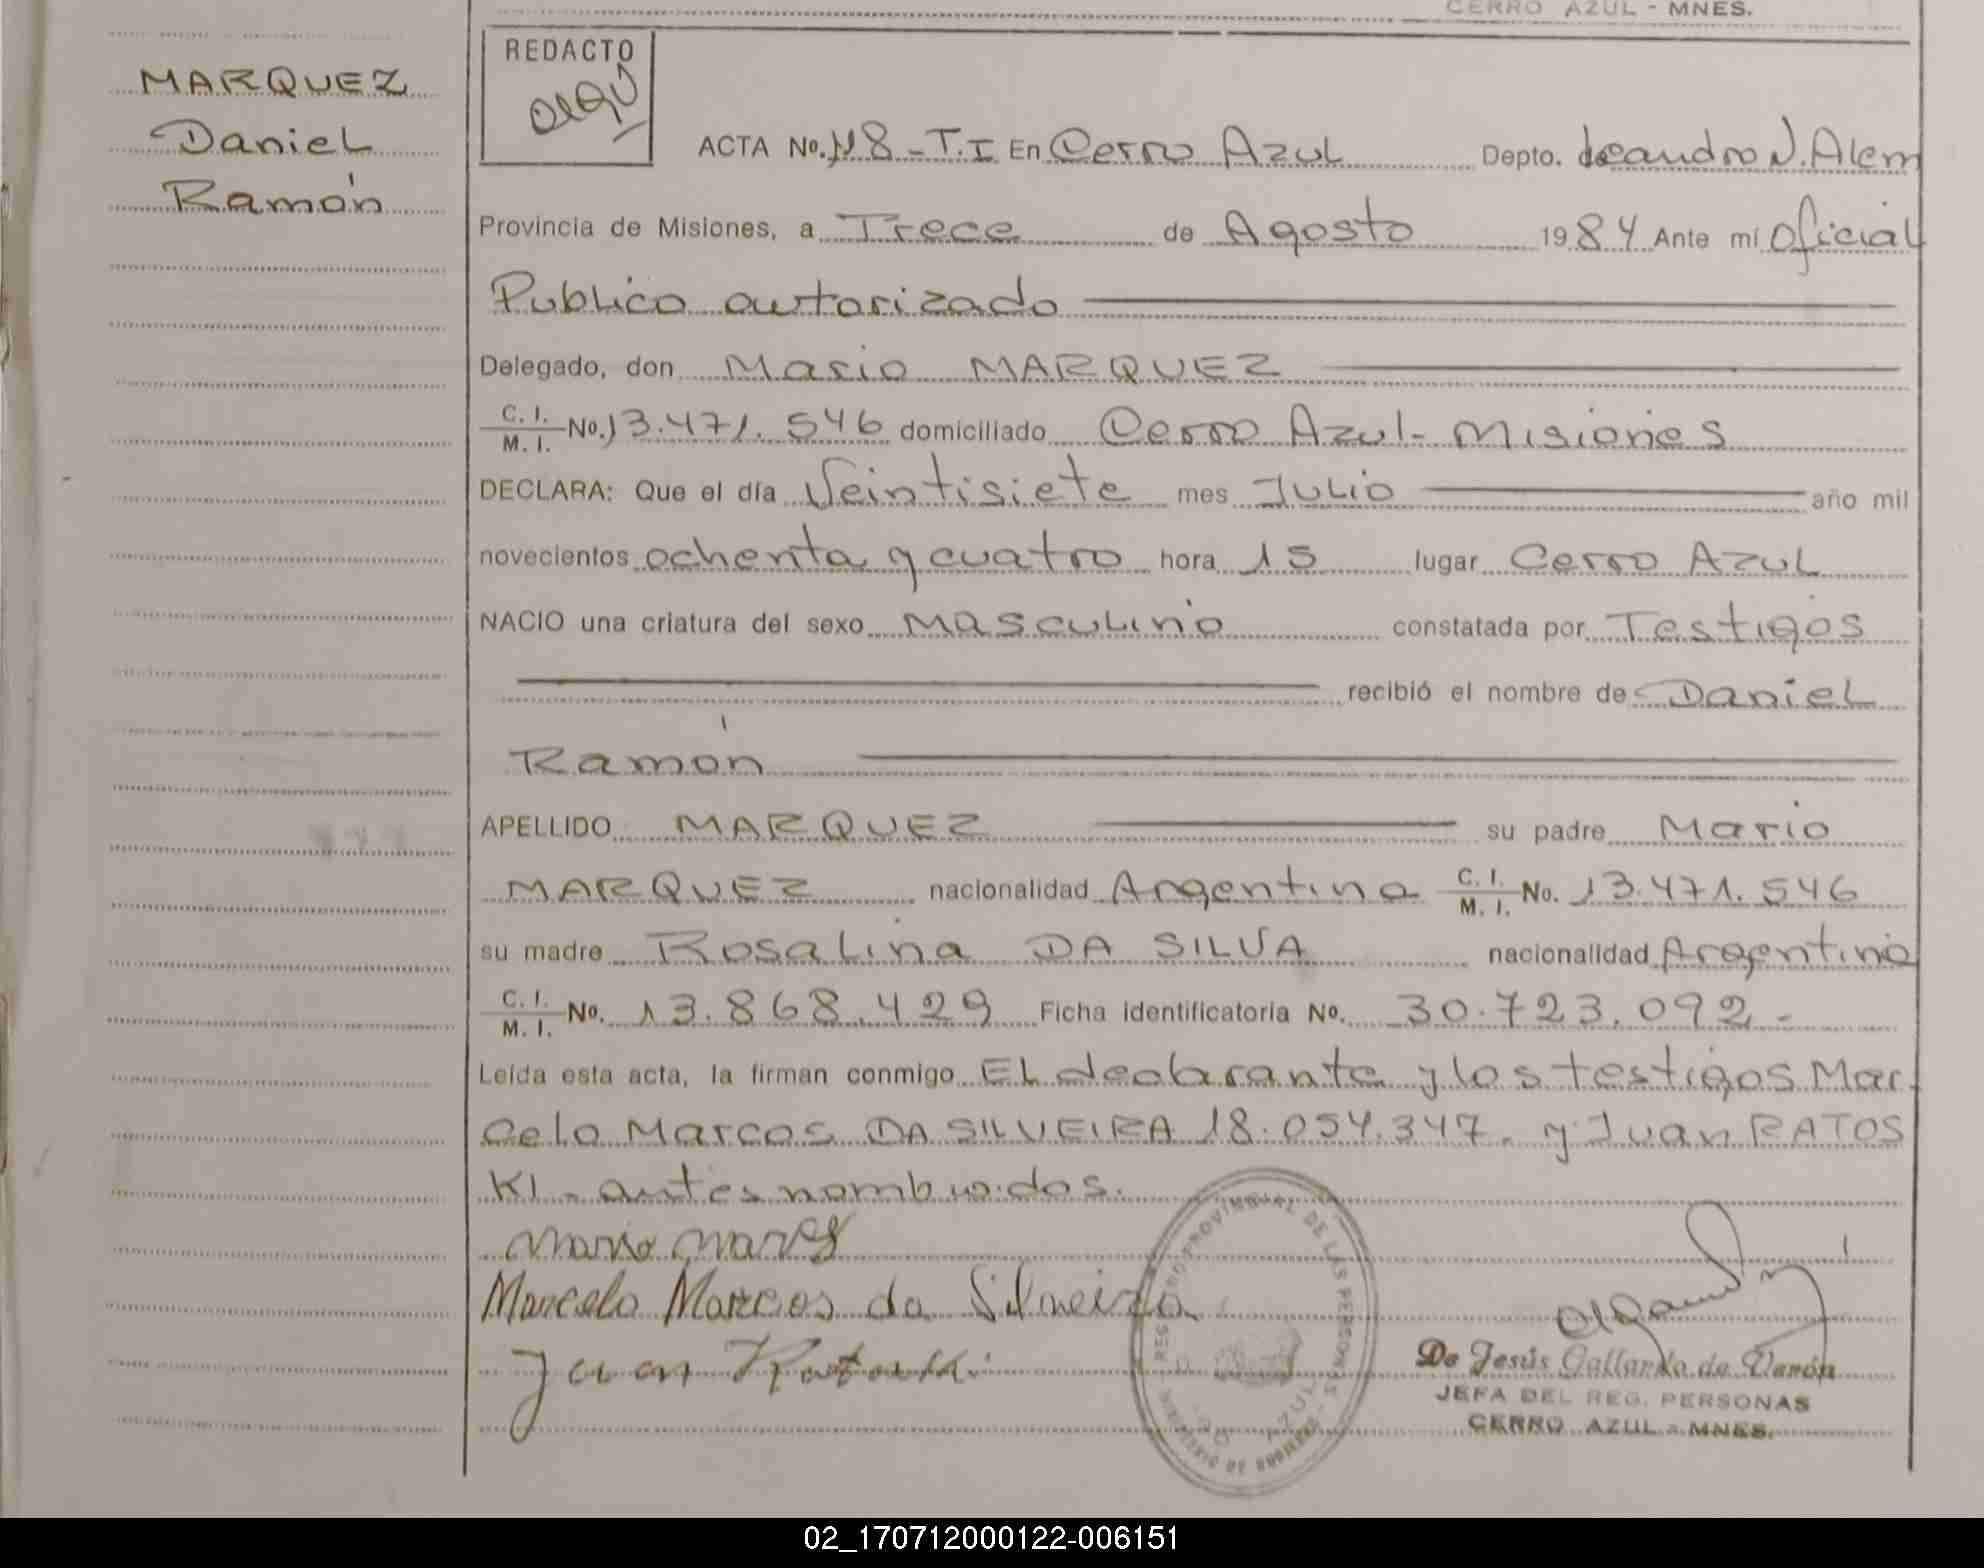 CERRO AZUL - MNES.
MARQUEZ
Daniel
Ramón
REDACTO
ACTA No. 118 - T.I En Cerro Azul Depto. Leandro N. Alem
Provincia de Misiones, a Trece de Agosto 1984 Ante mí Oficial
Publico autorizado
Delegado, don Mario MARQUEZ
C. I.
M. I. No. 13.471.546 domiciliado Cerro Azul - Misiones
DECLARA: Que el día Veintisiete mes Julio año mil
novecientos ochenta y cuatro hora 15 lugar Cerro Azul
NACIO una criatura del sexo Masculino constatada por Testigos
recibió el nombre de Daniel
Ramón
APELLIDO MARQUEZ su padre Mario
MARQUEZ nacionalidad Argentina C. I. M. I. No. 13.471.546
su madre Rosalina DA SILVA nacionalidad Argentina
C. I.
M. I. No. 13.868.429 Ficha identificatoria No. 30.723.092 -
Leída esta acta, la firman conmigo El declarante y los testigos Mar
celo Marcos DA SILVEIRA 18.054.347. y Juan RATOS
KI - antes
Mario
Marcelo Marcos da Silveira
Juan Ratoski
REGISTRO PROVINCIAL DE LAS PERSONAS
De Jesús Gallardo de Verón
JEFA DEL REG. PERSONAS
CERRO AZUL - MNES.
02_170712000122-006151